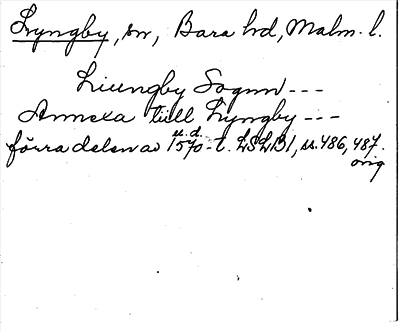 Lyngby, sn, Bara hd, Malm. l.
Liungby Sognn ---
Annexa till Lyngby ---
u. d.
förra delen av 1570-t. LSLB1, ss. 486, 487.
orig